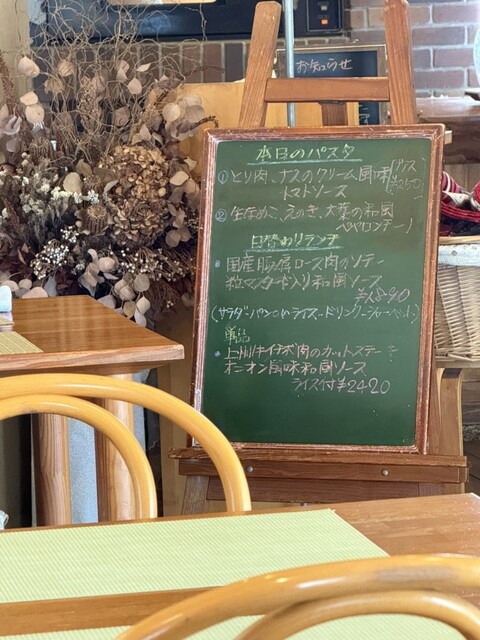 お知らせ
本日のパスタ
① とり肉、ナスのクリーム風味
トマトソース
② 生なめこ、えのき、大葉の和風
ペペロンチーノ
日替わりランチ
・国産豚肩ロース肉のソテー
粒マスタード入り和風ソース
(サラダ・パンorライス・ドリンク・シャーベット)
単品
・上州牛イチボ肉のカットステーキ
オニオン風味和風ソース
ライス付 ¥2420